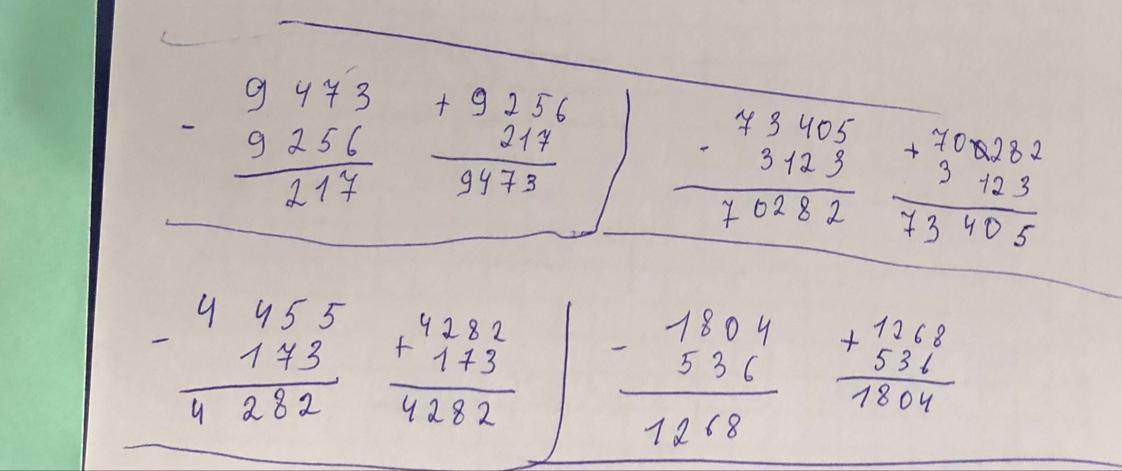 - 9 473
9 256
217
+ 9 256
217
9473
- 73 405
3 123
70282
+ 70 282
3 123
73 405
- 4 455
173
4 282
+ 4282
173
4282
- 1804
536
1268
+ 1268
536
1804